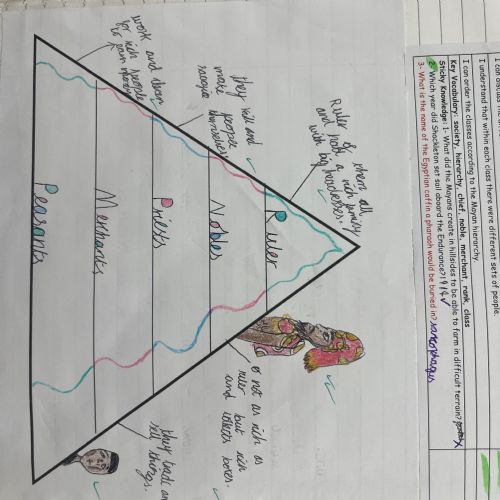 I understand that within each class there were different sets of people.
I can order the classes according to the Mayan hierarchy.
Key Vocabulary: society, hierarchy, chief, noble, merchant, rank, class
Sticky Knowledge: 1- What did the Mayans create in hillsides to be able to farm in difficult terrain?
2- Which year did Shackleton set sail aboard the Endurance? 1914
3- What is the name of the Egyptian coffin a pharaoh would be buried in?
Ruler of them all
and had a rich family
with big headresses.
they kill and
make people
themselves
work and slaves
for rich people
to earn money
Ruler
Nobles
Priests
Merchants
Peasants
or not as rich as
ruler but rich
and collects taxes.
they trade and
sell things.